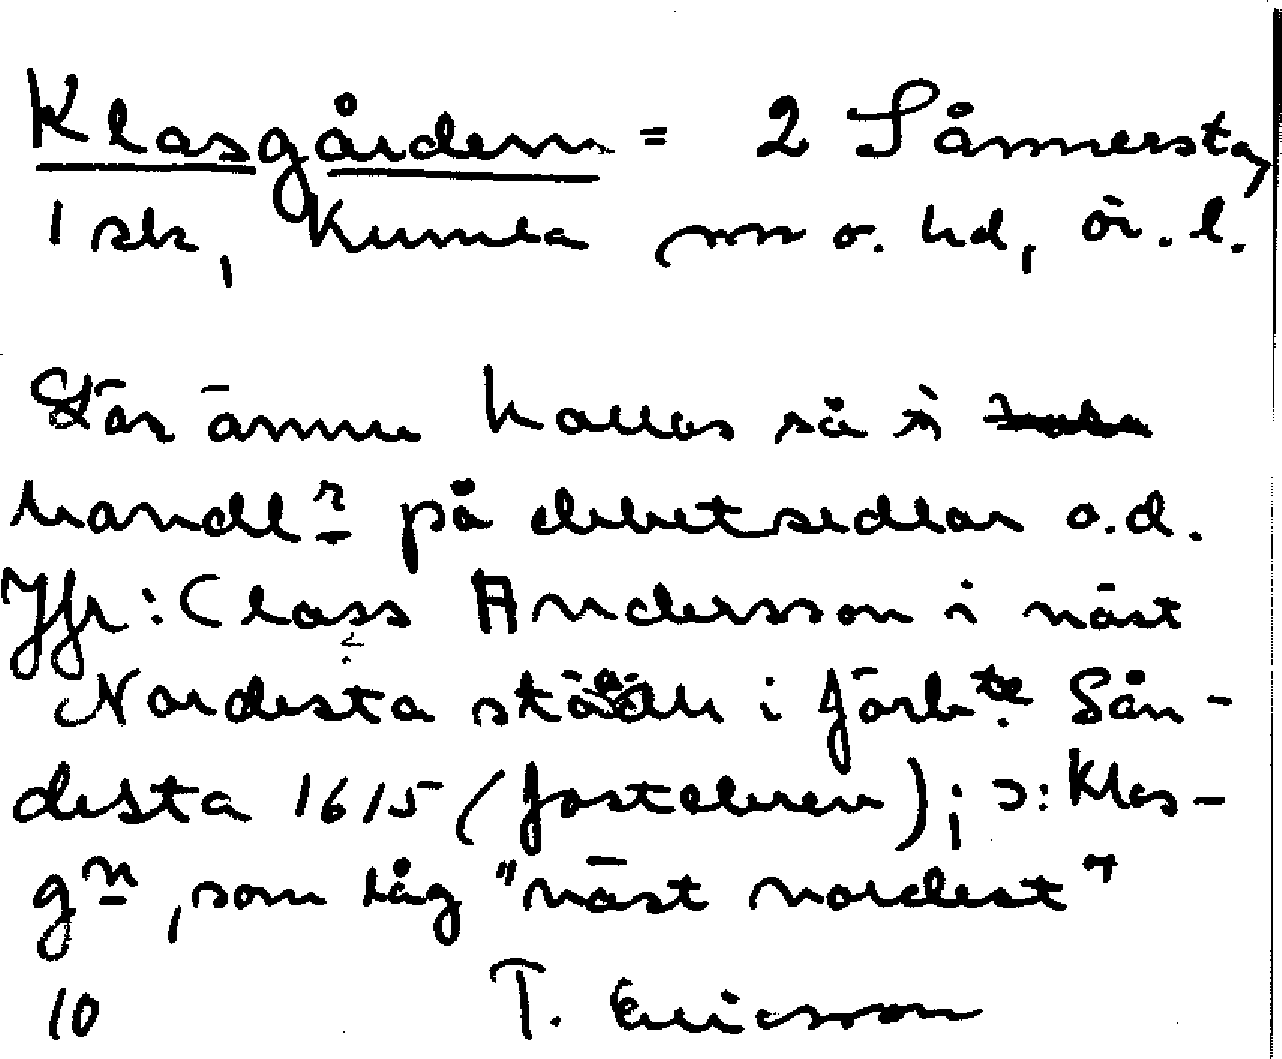 Klasgården = 2 Sånnersta,
1 sk, Kumla sn o. hd, ör. l.
Lär ännu kallas så i
handlr på debetsedlar o.d.
Jfr: Class Andersson i näst
Nordesta i förbte Sån-
desta 1615 (jordeboken); ɔ: Klas-
gn, som låg "näst nordest"
10 T. Ericsson